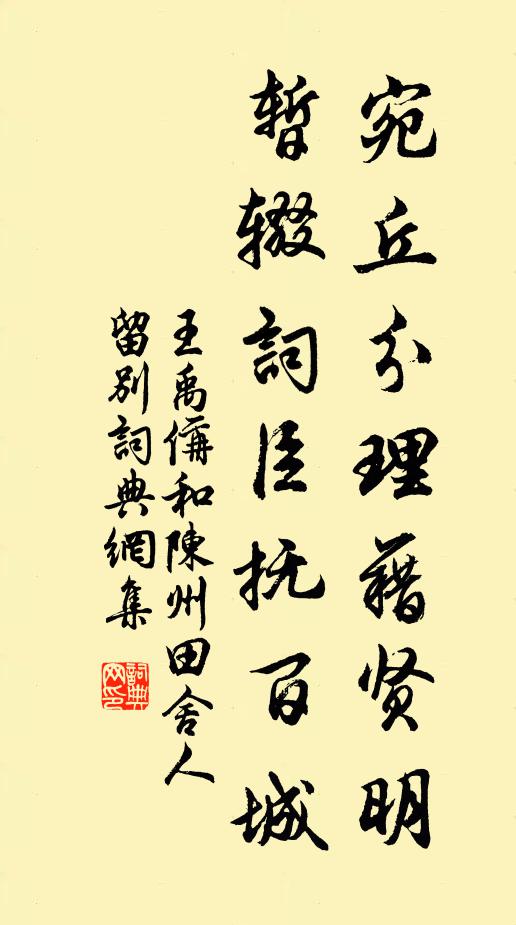 宛丘分理藉贤明
暂辍詞臣抚百城
王禹偁和陳州田舍人
留别詞典網集
詞典网印